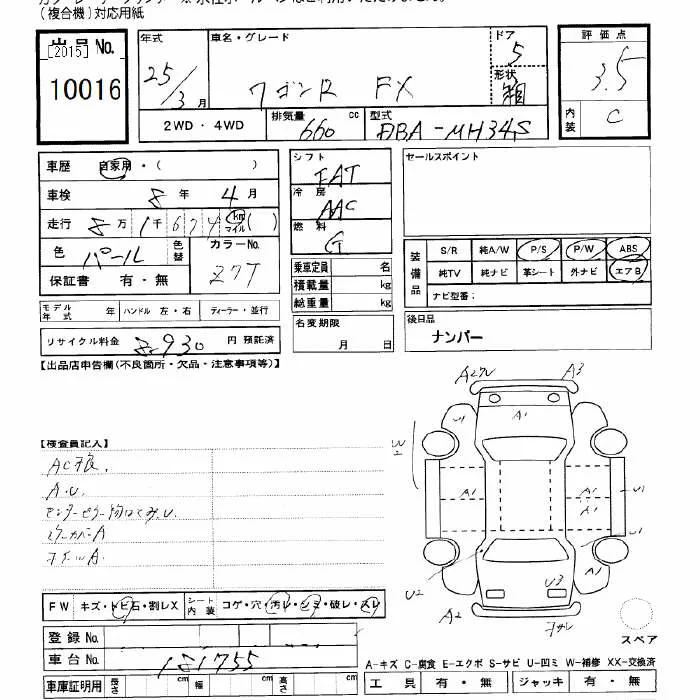 (複合機)対応用紙
出品 No.
[2015]
10016
年式
25/3 月
車名・グレード
ワゴンR FX
ドア
5
形状
箱
評価点
3.5
内装
C
2WD・4WD
排気量 660 cc
型式 DBA-MH34S
車歴 自家用・( )
車検 8年 4月
走行 8万1千674 km マイル ( )
色 パール
色替
カラーNo.
Z7T
保証書 有・無
シフト
FAT
冷房
AAC
燃料
G
乗車定員 名
積載量 kg
総重量 kg
セールスポイント
装備品
S/R 純A/W P/S P/W ABS
純TV 純ナビ 革シート 外ナビ エアB
ナビ型番:
モデル年式 年 ハンドル 左・右 ディーラー・並行
名変期限
月 日
後日品
ナンバー
リサイクル料金 8930 円 預託済
【出品店申告欄(不良箇所・欠品・注意事項等)】
A2 A3
A1 A1
W2
A1 A1 A1 U1
A1
U1
A1
U2 U3
A2
【検査員記入】
A.U.
FW キズ・トビ石・割レX シート内装 コゲ・穴・汚レ・シミ・破レ・スレ
登録 No.
車台 No. 181755
車庫証明用 長さ cm 幅 cm 高さ cm
スペア
A-キズ C-腐食 E-エクボ S-サビ U-凹ミ W-補修 XX-交換済
工具 有・無 ジャッキ 有・無